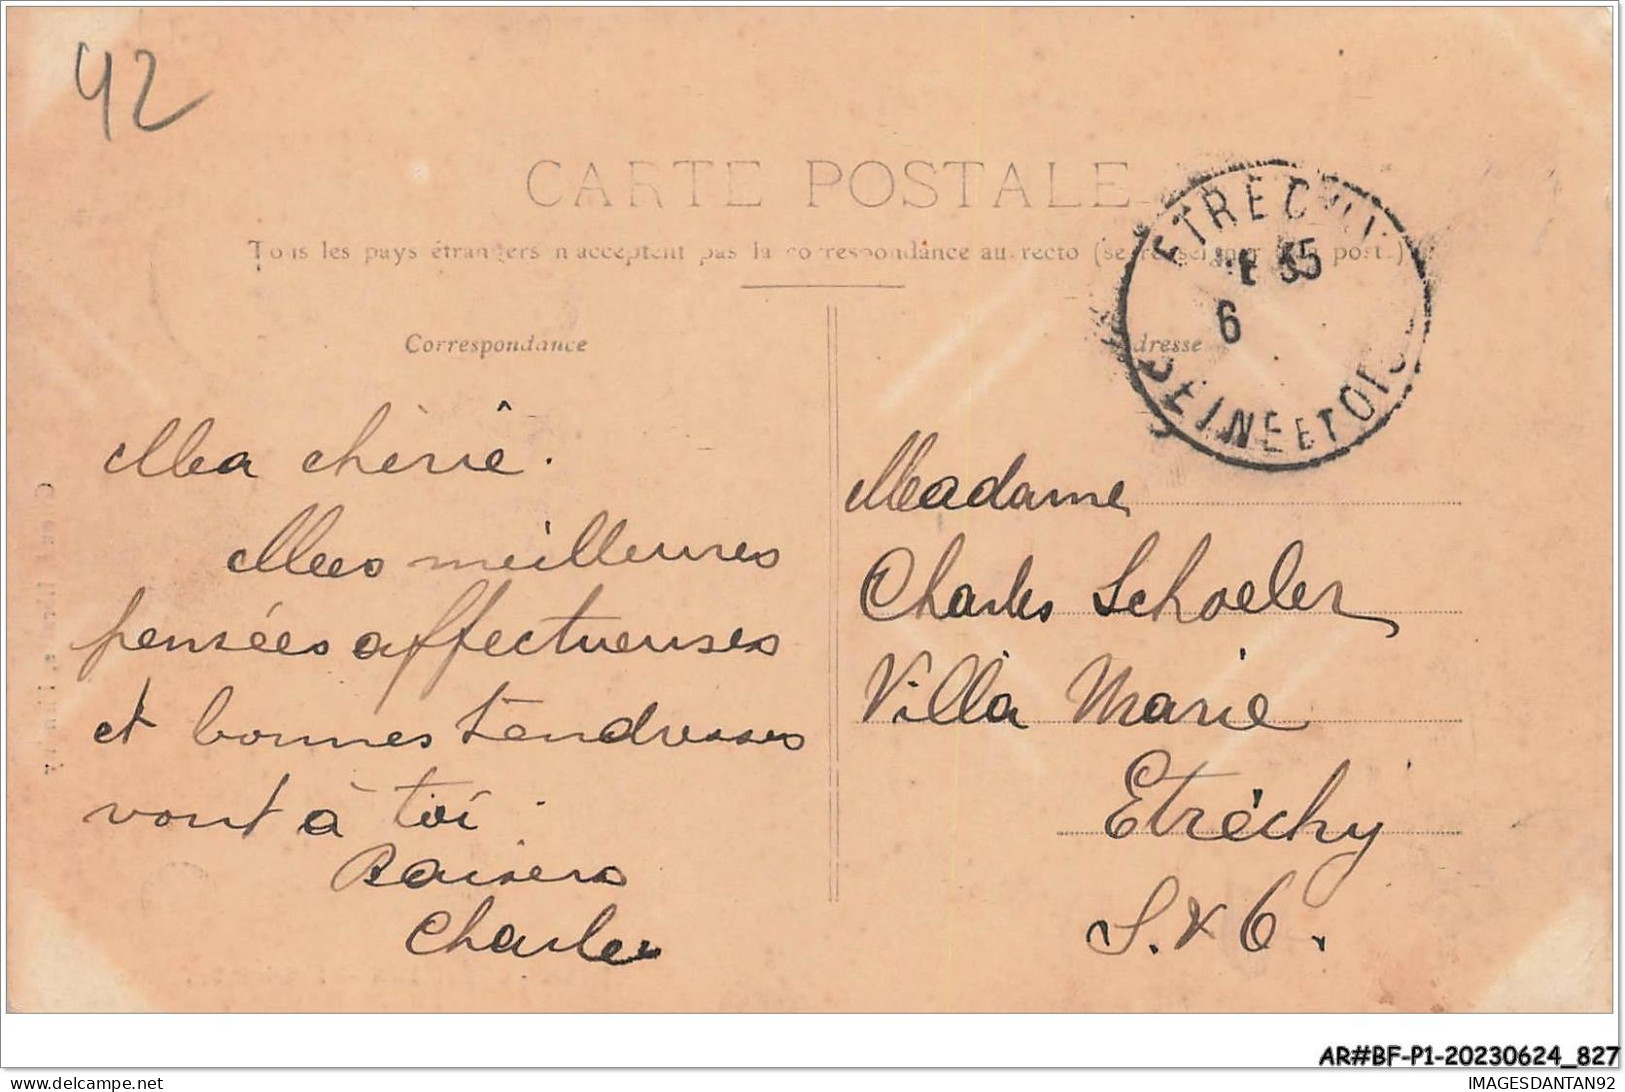 42
CARTE POSTALE
Tous les pays étrangers n'acceptent pas la correspondance au recto (se renseigner à la poste.)
Correspondance
Adresse
ETRECHY
35
6
SEINE ET OISE
Ma chérie.
Mes meilleures
pensées affectueuses
et bonnes tendresses
vont à toi.
Baisers
Charles
Madame
Charles Schoeler
Villa Marie
Etréchy
S. & O.
AR#BF-P1-20230624_827
delcampe.net
IMAGESDANTAN92